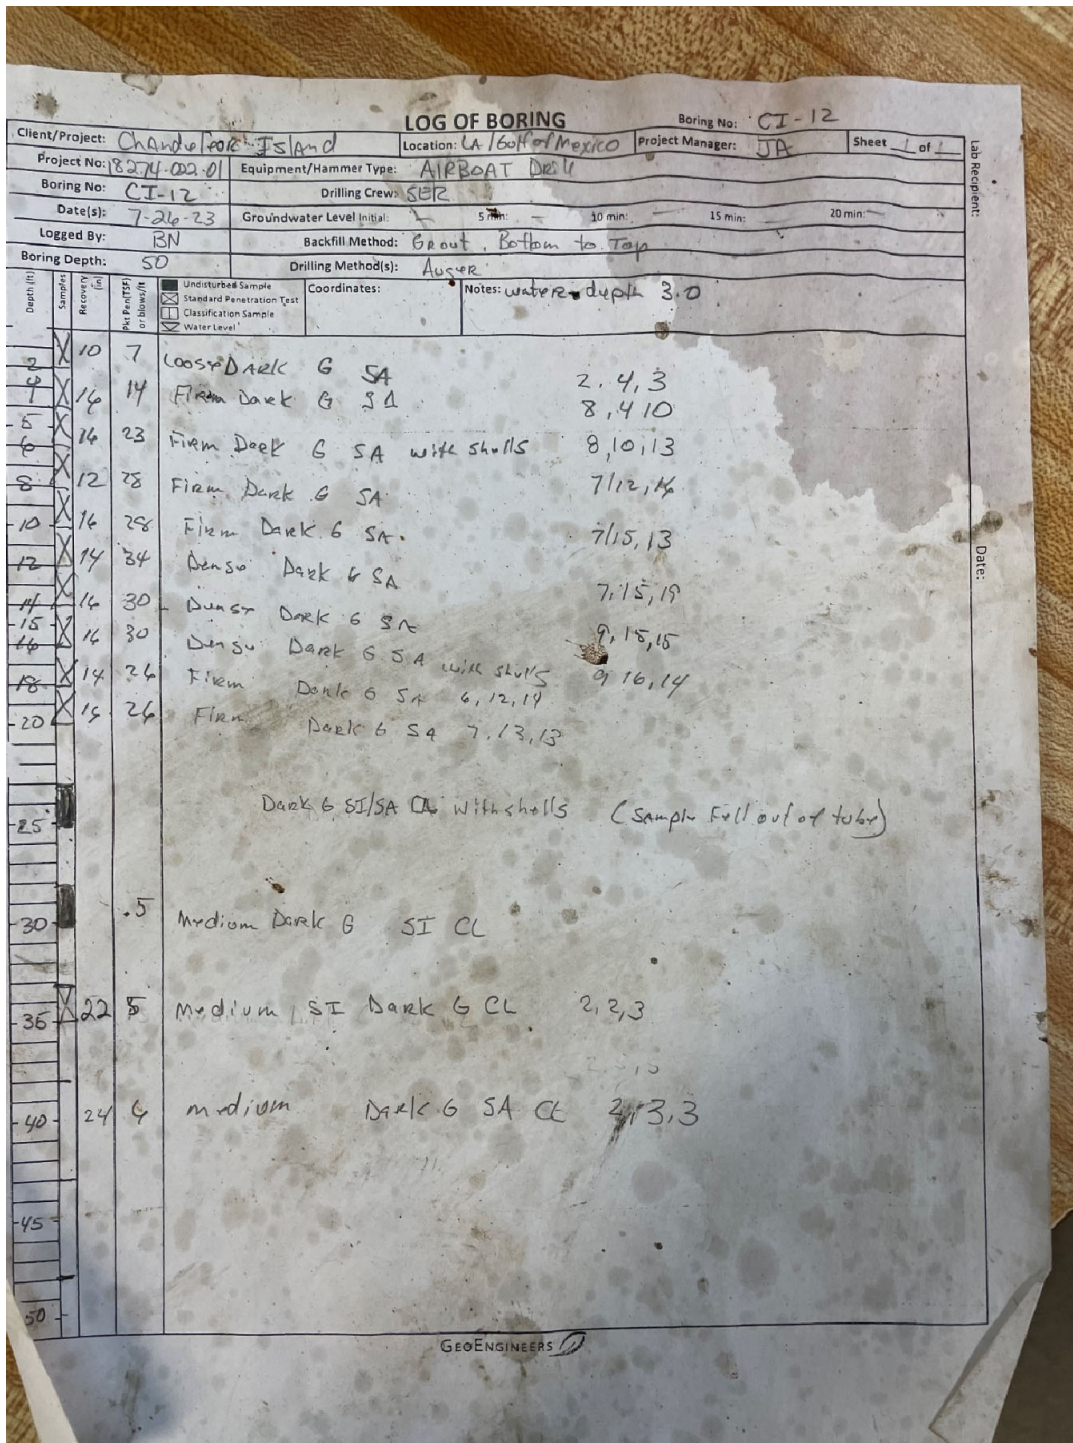 LOG OF BORING
Boring No: CI-12
Client/Project: Chandeleor Island Location: LA/Gulf of Mexico Project Manager: JA Sheet 1 of 1
Project No: 18274-022-01 Equipment/Hammer Type: AIRBOAT Drill
Boring No: CI-12 Drilling Crew: SER
Date(s): 7-26-23 Groundwater Level Initial: - 5 min: - 10 min: - 15 min: - 20 min: -
Logged By: BN Backfill Method: Grout, Bottom to Top
Boring Depth: 50 Drilling Method(s): Auger
Depth (ft) Samples Recovery (in) Pkt Pen(TSF) or blows/ft
Undisturbed Sample
Standard Penetration Test
Classification Sample
Water Level
Coordinates:
Notes: water depth 3.0
Lab Recipient:
Date:
2 10 7 Loose Dark G SA 2, 4, 3
4 16 14 Firm Dark G SA 8, 4 10
5
6 16 23 Firm Dark G SA with shells 8, 10, 13
8 12 28 Firm Dark G SA 7/12, 16
10 16 28 Firm Dark G SA. 7/15, 13
12 14 34 Dense Dark G SA 7, 15, 19
14 16 30 Dense Dark G SA 9, 15, 15
15
16 16 30 Dense Dark G SA with shells 9 16, 14
18 14 26 Firm Dark G SA 6, 12, 14
20 16 26 Firm Dark G SA 7, 13, 13
25 Dark G SI/SA CL with shells (Sample Fell out of tube)
30 .5 Medium Dark G SI CL
35 22 5 Medium SI Dark G CL 2, 2, 3
40 24 6 Medium Dark G SA CL 2, 3, 3
45
50
GEOENGINEERS